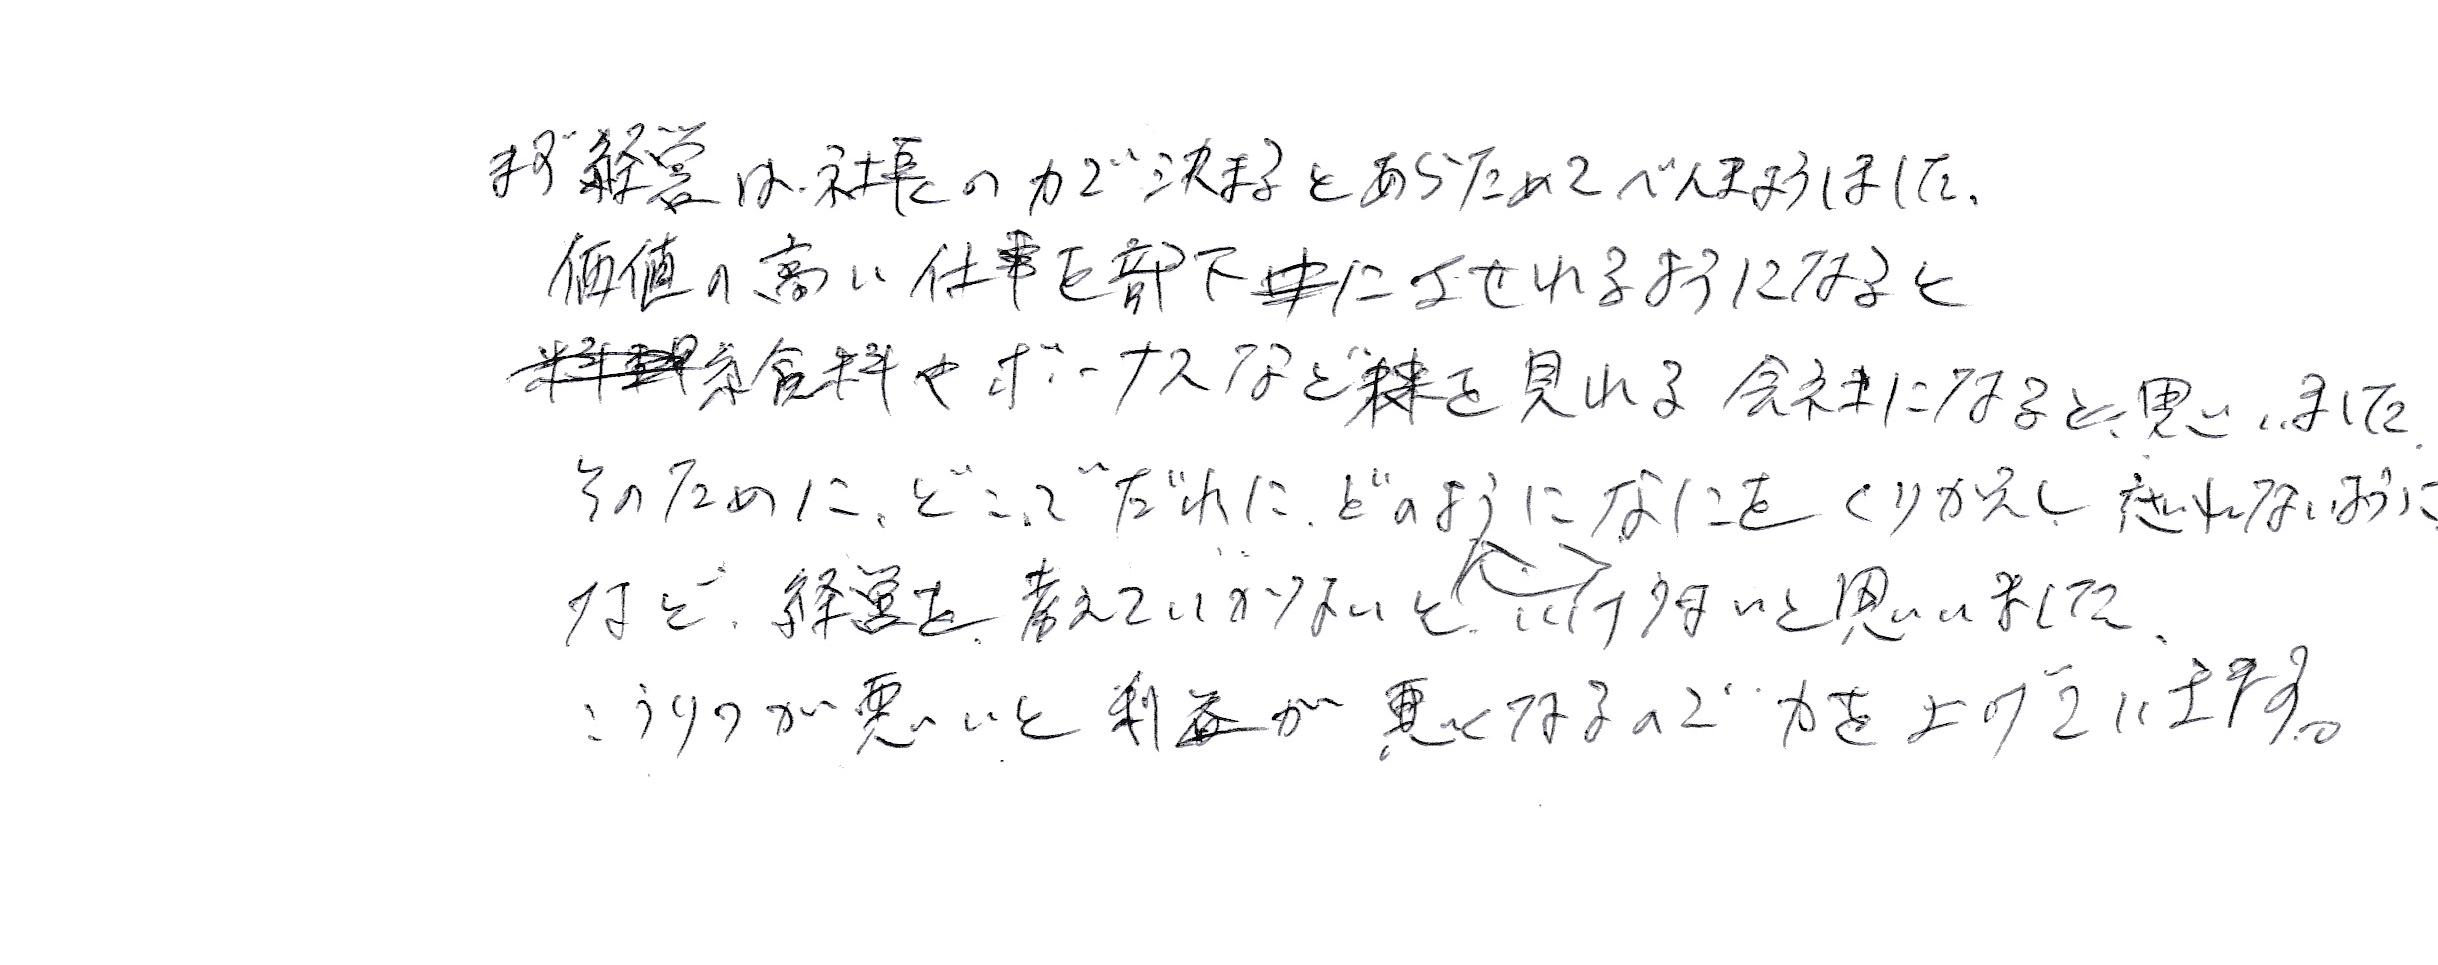 まず経営は、社長の力で決まるとあらためてべんきょうしました。
価値の高い仕事を部下にまかせれるようになると
給料やボーナスなど夢を見れる会社になると思いました。
そのために、どこで だれに、どのように なにを くりかえし きれないように
など、経営を考えていかないと いけないと思いました。
こうりつが悪いと利益が悪くなるので 力を上げています。